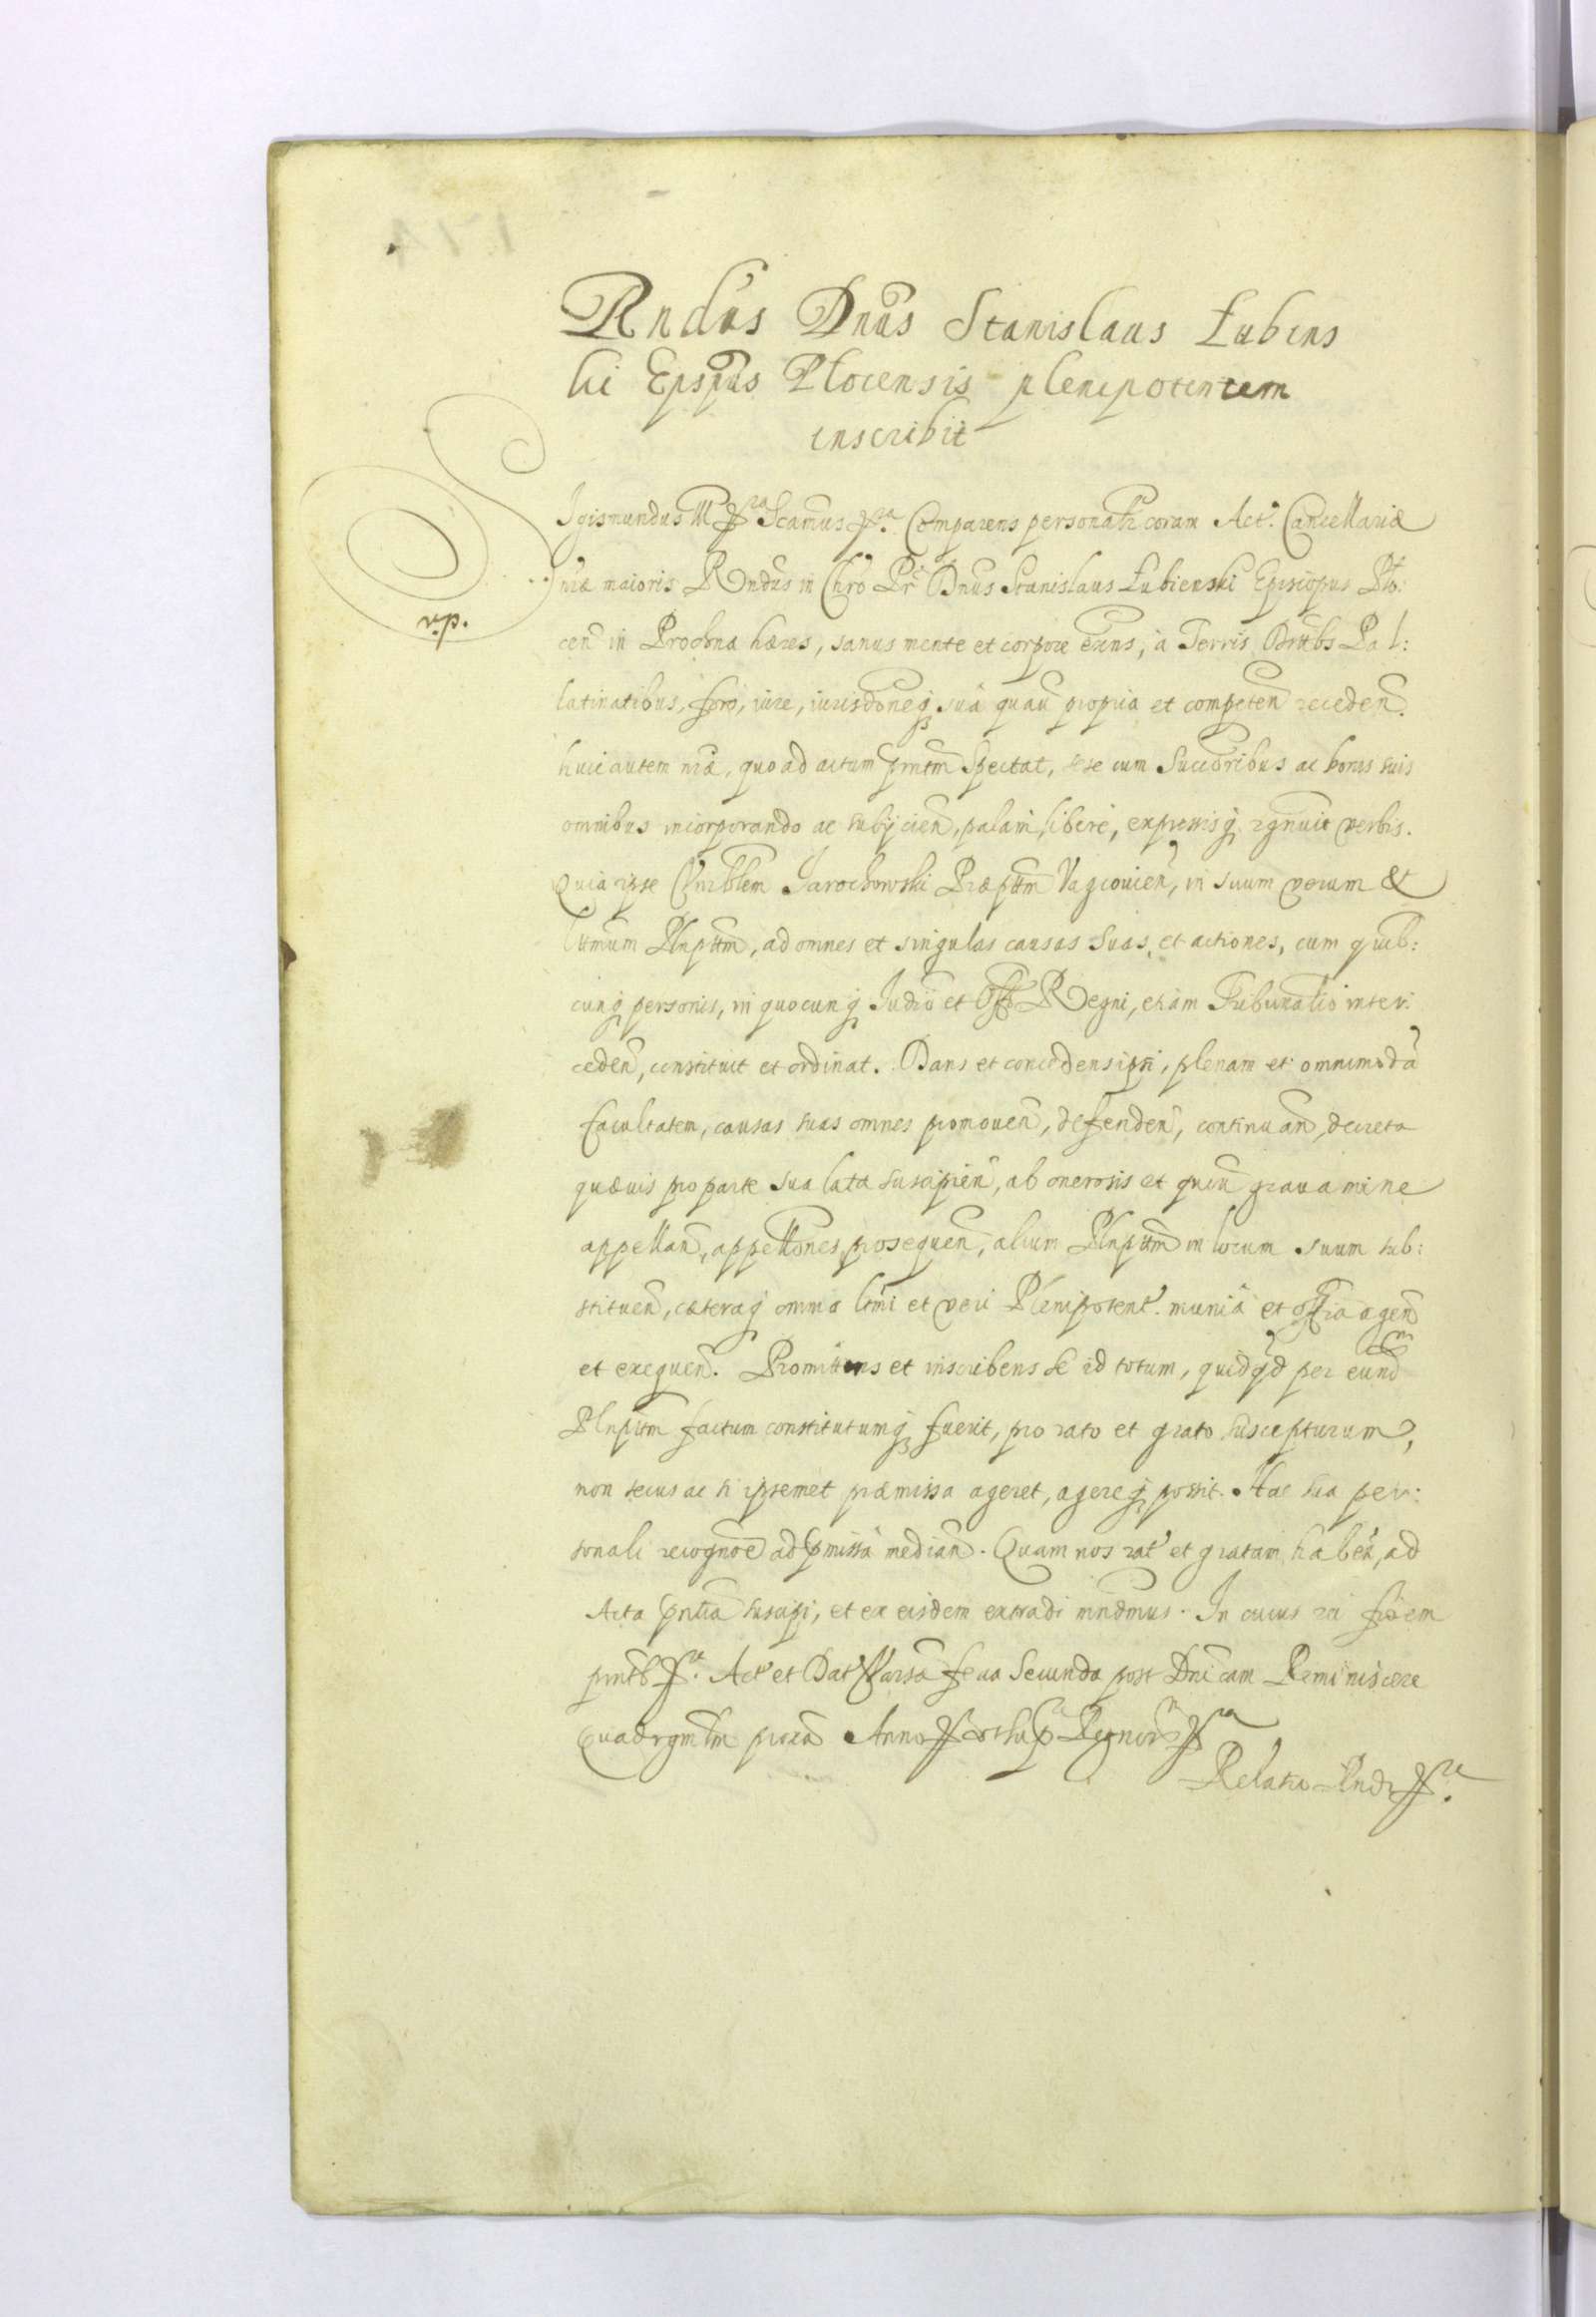 Rndus Dnus Stanislaus Łubins
ki Epspus Plocensis plenipotentem
inscribit
Sigismundus III &ra Scamus &ra. Comparens personalr coram Act. Cancellariæ
nræ maioris Rndus in Chro Pr Dnus Stanislaus Łubienski Episcopus Plo:
cen in Prochna hæres, sanus mente et corpore exns, à Terris Dittbs Pal:
latinatibus, foro, iure, iurisdoneq sua quau propria et competen receden.
huic autem nræ, quo ad actum pntm spectat, sese cum Succoribus ac bonis suis
omnibus incorporando ac subijcien, palam libere, expressisq rgnuit verbis.
Quia ipse Jarochowski Præpttm in suum verum et
lttmum Plnpttm, ad omnes et singulas causas suas, et actiones, cum quib:
cunq personis, in quocunq Judio et Offo Regni, etiam Tribunalio inter:
ceden, constituit et ordinat. Dans et concedens ipsi, plenam et omnimoda
facultatem, causas suas omnes promouen, defenden, continuan, decreta
quævis pro parte sua lata suscipien, ab onerosis et grauamine
appellan, appellones prosequen, alium Plnpttm in locum suum sub:
stituen, cæteraq omnia lttmi et veri Plenipotent. munia et offia agen
et exequen. Promittens et inscribens se id totum, quidqd per eund
Plnpttm factum constitutumq fuerit, pro rato et grato suscepturum,
non secus ac si ipsemet præmissa ageret, agereq possit. Hac sua per:
sonali recognoe ad pmissa median. Quam nos rat et gratam haben, ad
Acta pntia suscipi, et ex eisdem extradi mndmus. In cuius rei fidem
pntib &ra. Act et Dat Varsa feria Secunda post Dnicam Reminiscere
Quadrgmlm proxa Anno & Regnor &ra
Relatio Rndi &ra.
v.p.